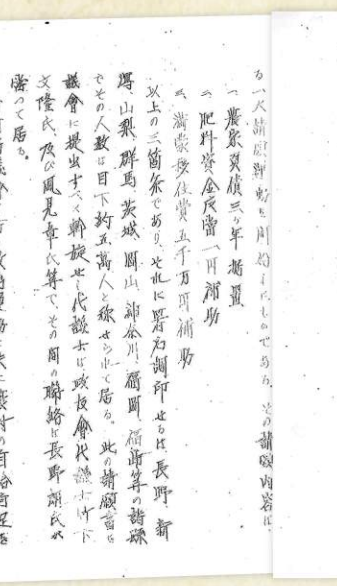 る一大請願運動を開始したものである。その請願内容は、
一、農家負債三ヶ年据置
二、肥料資金反当一円補助
三、満蒙移住費五千万円補助
以上の三箇条であり、それに署名調印せるは、長野、新
潟、山梨、群馬、茨城、岡山、神奈川、福岡、福島等の諸県
でその人数は目下約五万人と称せられて居る。此の請願書は
議会に提出すべく斡旋せる代議士は政友会代議士竹下
文隆氏、及び風見章氏等でその間の聯絡は長野朗氏が
当って居る。